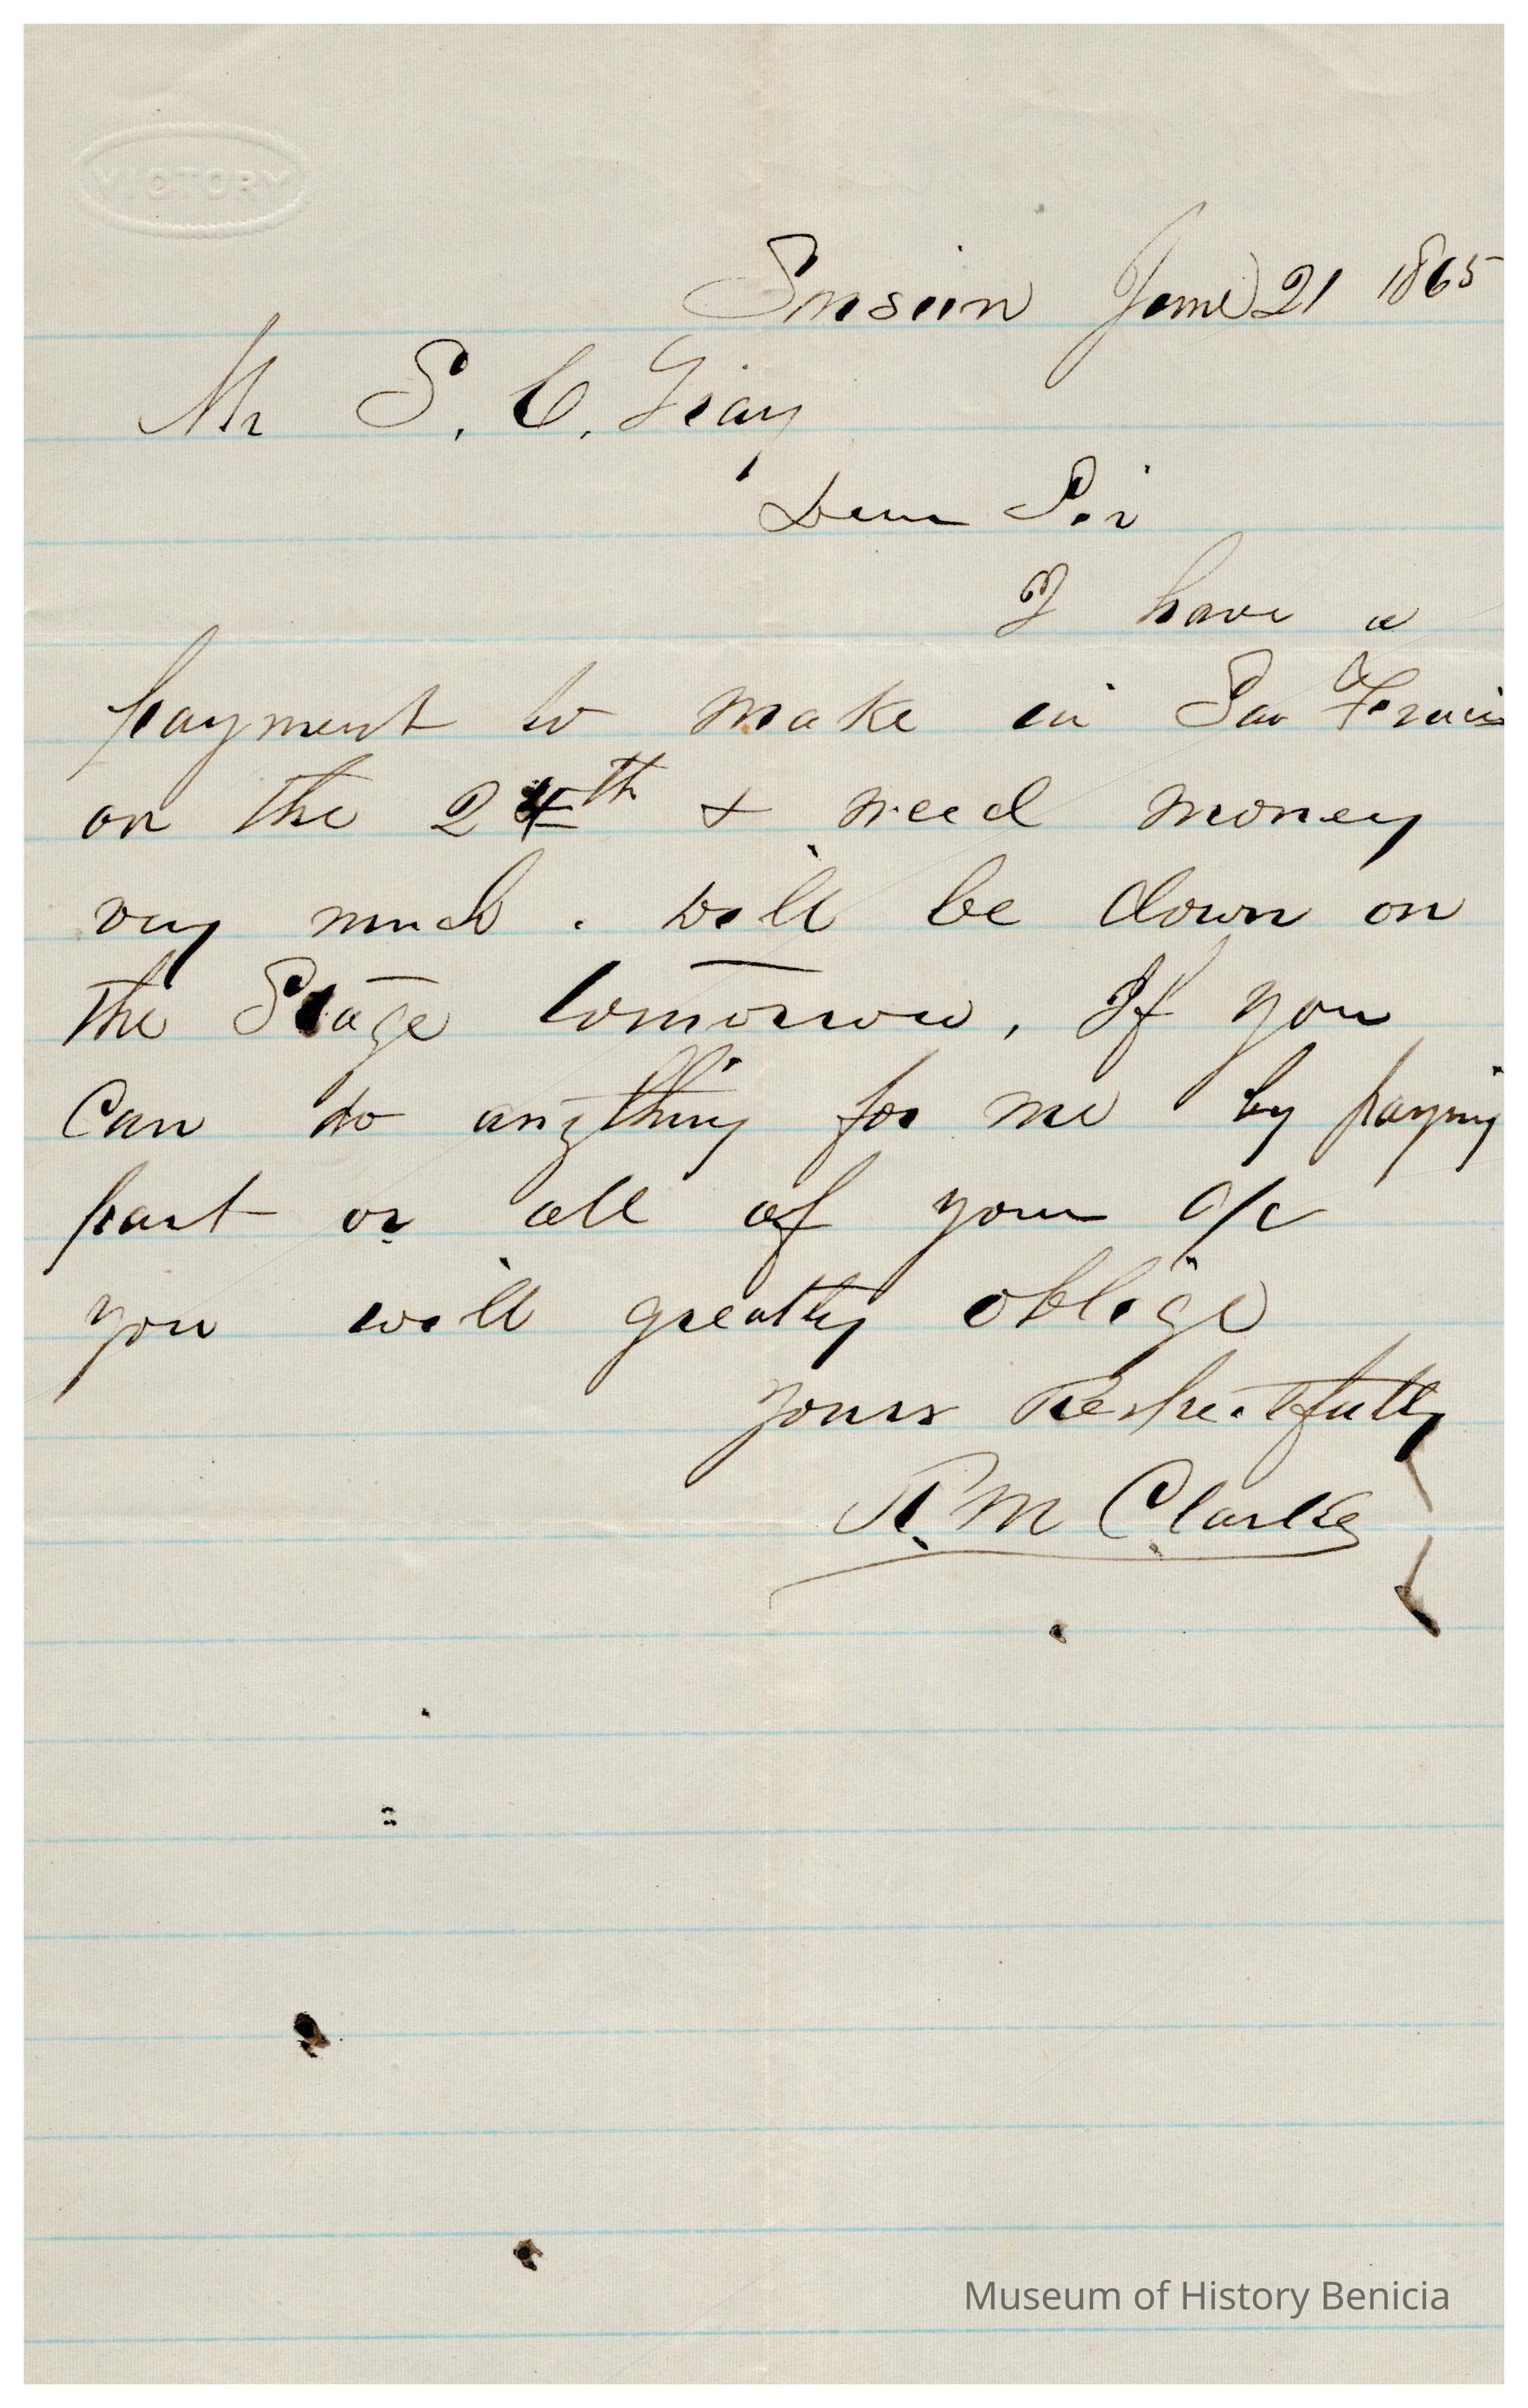 VICTORY
Suisun June 21 1865
Mr S. C. Gray
Dear Sir
I have a
payment to make in San Francis
on the 24th & need money
very much. will be down on
the Stage tomorrow, If you
Can do anything for me by paying
part or all of your a/c
you will greatly oblige
Yours Respectfully
R. M Clarke
Museum of History Benicia